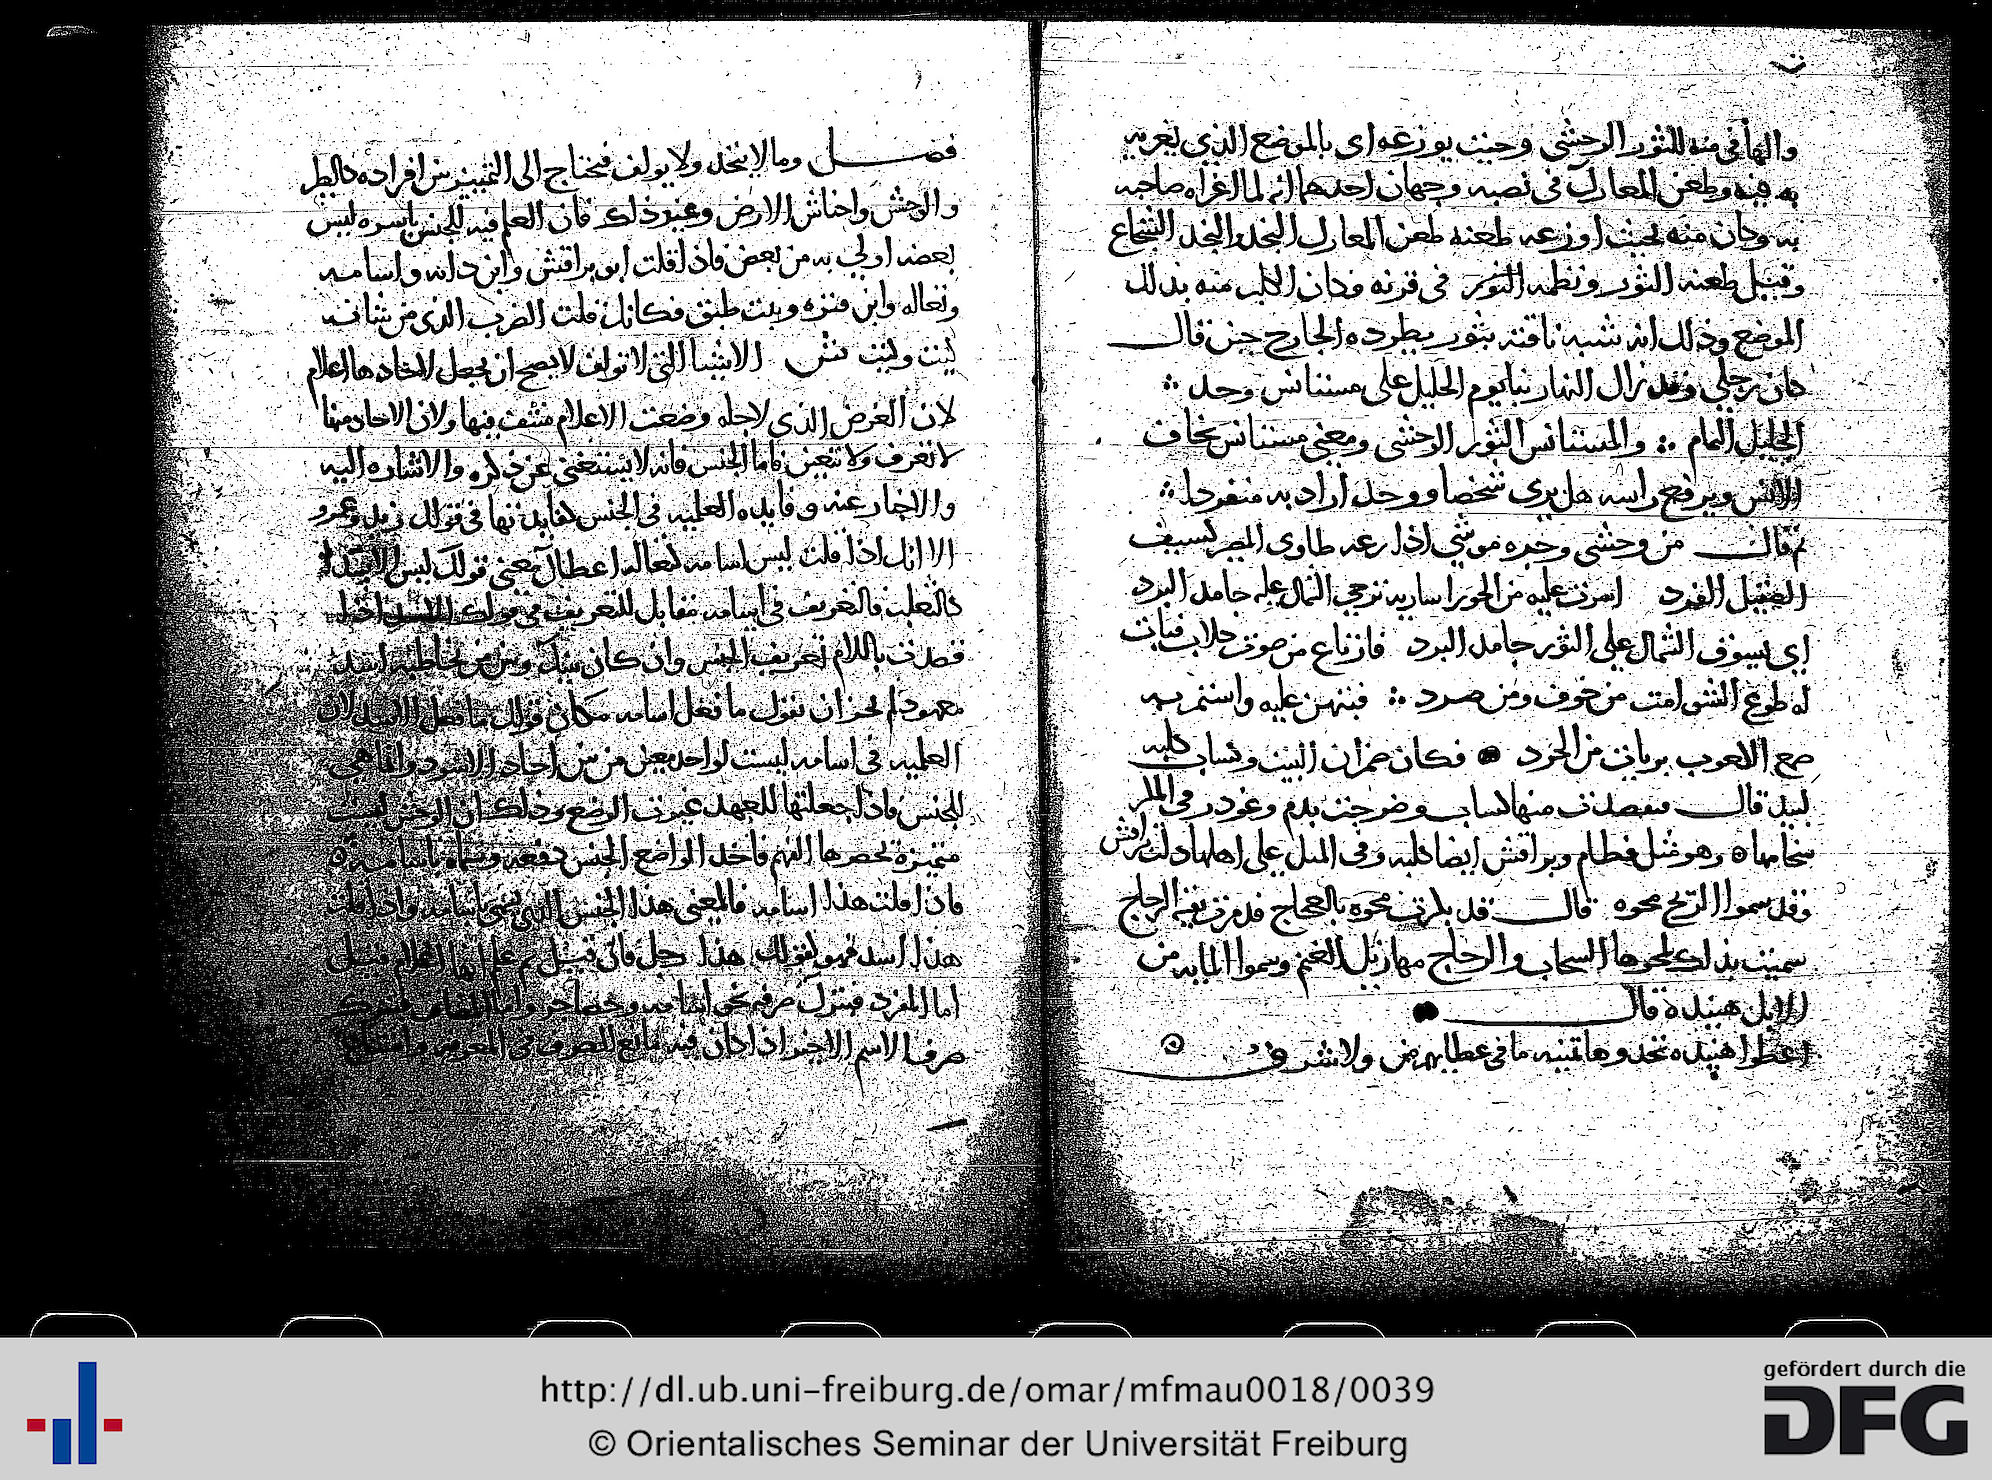 والهافي منه للثور الوحشي وحيث يوزعه اى بالموضع الذي يغريه
به فيه وطعن المعارك فى نصبه وجهان احدهما انه لما اغراه صاحبه
به وكان منه بحيث اوزعه طعنه طعن المعارك النجد والنجد الشجاع
وقيل طعنه الثور ونظمه الثور فى قرنه وكان الكلب منه بذلك
الموضع وذلك انه شبه ناقته بثور يطرده الجارح حين قال
كان رحلي وقد زال النهار بنا يوم الجليل على مستانس وحد
الجليل الثمام والمستانس الثور الوحشى ومعنى مستانس يخاف
الانس ويرفع راسه هل يرى شخصا ووحد اراد به منفردا
ثم قال من وحشى وجره موشي اكارعه طاوى المصير كسيف
الصقيل الفرد اسرت عليه من الجوزا سارية تزجي الشمال عليه جامد البرد
اى يسوق الشمال على الثور جامد البرد فارتاع من صوت كلاب فبات
له طوع الشوامت من خوف ومن صرد فبثهن عليه واستمر به
صمع الكعوب بريات من الحرد فكان ضمران البيت وكساب كلبه
لبيد قال فتقصدت منها كساب وضرجت بدم وغودر فى المكر
سخامها وهو مثل قطام وبراقش ايضا كلبه وفى المثل على اهلها دلت براقش
وقد سموا الريح محوه قال قد بكرت محوه بالعجاج فدمرت بقيه الرجاج
سميت بذلك لمحوها السحاب والرجاج مهازيل الغنم وسموا المايه من
الابل هنيدة قال
اعطوا هنيده تحدوها ثمنيه ما فى عطايهم من ولا شرف
فصل وما لا يتخذ ولا يولف فيحتاج الى التمييز بين افراده كالطير
والوحش واحناش الارض وغير ذلك فان العلم فيه للجنس باسره ليس
بعضه اولى به من بعض فاذا قلت ابو براقش وابن دايه واسامه
وثعاله وابن قتره وبنت طبق فكانك قلت الضرب الذى من شانه
كيت وكيت ش الاشيا التى لا تولف لا يصح ان يجعل لاحادها اعلام
لان الغرض الذى لاجله وضعت الاعلام منتف فيها ولان الاحاد منها
لا تعرف ولا تتعين فاما الجنس فانه لا يستغنى عن ذكره والاشاره اليه
والاخبار عنه وفايده العلميه فى الجنس كفايدتها فى قولك زيد وعمرو
الا انك اذا قلت ليس اسامه كثعاله اعطاك معنى قولك ليس الاسد
كالثعلب فالتعريف فى اسامه مقابل للتعريف فى قولك الاسد اذا
قصدت باللام تعريف الجنس وان كان بينك وبين من تخاطبه اسد
معهود لم يجز ان تقول ما فعل اسامه مكان قولك ما فعل الاسد لان
العلميه فى اسامه ليست لواحد معين من بين احاد الاسود وانما هى
للجنس فاذا جعلتها للعهد غيرت الوضع وذلك ان الوحش ليست
متميزة يحصرها الفهم فاخذ الواضع الجنس دفعه وسماه باسامه
فاذا قلت هذا اسامه فالمعنى هذا الجنس الذى يسمى باسامه واذا قلت
هذا اسد فهو كقولك هذا رجل فان قيل
اما المفرد فبترك صرفه نحو اسامه
صرف الاسم الاخير اذا كان فيه مانع الصرف فى المعرفه
http://dl.ub.uni-freiburg.de/omar/mfmau0018/0039
© Orientalisches Seminar der Universität Freiburg
gefördert durch die
DFG